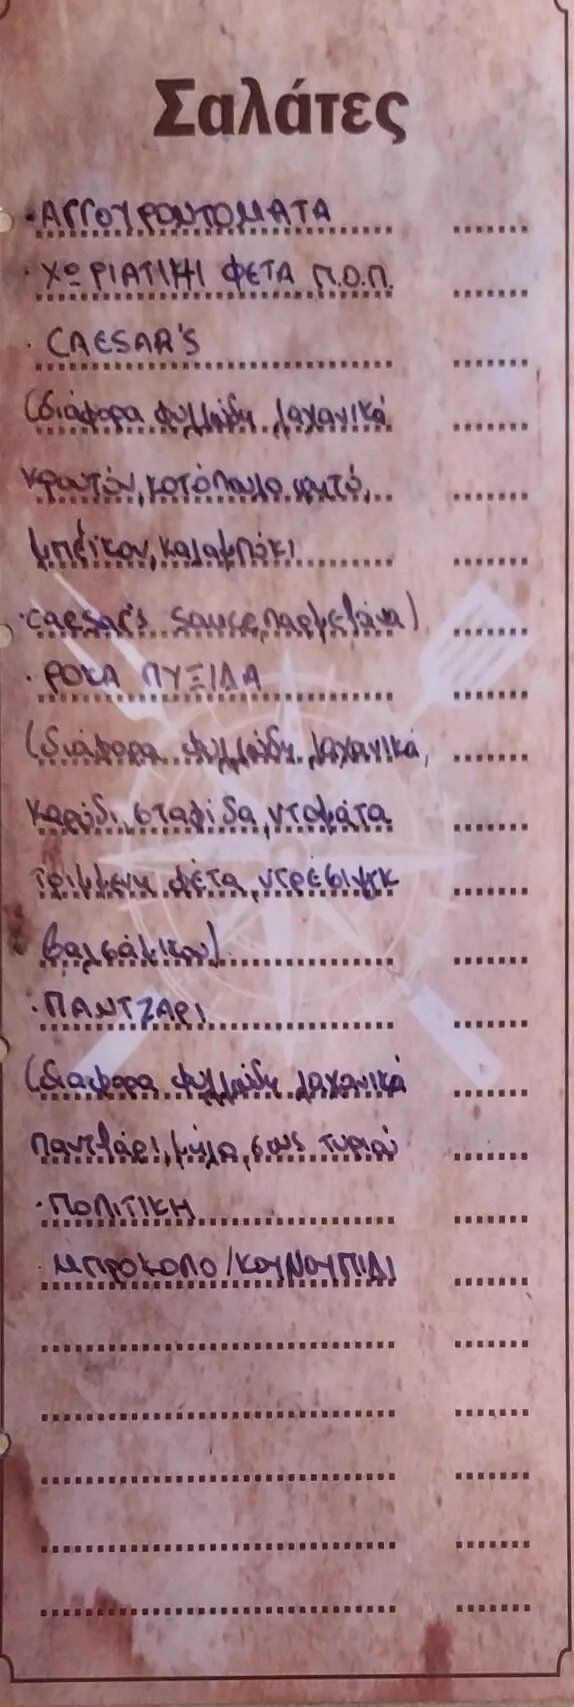 Σαλάτες
· ΑΓΓΟΥΡΟΝΤΟΜΑΤΑ
· ΧΩΡΙΑΤΙΚΗ ΦΕΤΑ Π.Ο.Π.
· CAESAR'S
(διάφορα φυλλώδη λαχανικά
κρουτόν, κοτόπουλο ψητό,
μπέικον, καλαμπόκι
caesar's sauce, παρμεζάνα)
· ΡΟΚΑ ΠΥΞΙΔΑ
(διάφορα φυλλώδη λαχανικά,
καρύδι, σταφίδα, ντομάτα
τριμμένη φέτα, ντρέσινγκ
βαλσάμικου)
· ΠΑΝΤΖΑΡΙ
(διαφορα φυλλώδη λαχανικά
παντζάρι, μήλο, σως τυριού
· ΠΟΛΙΤΙΚΗ
· ΜΠΡΟΚΟΛΟ/ΚΟΥΝΟΥΠΙΔΙ